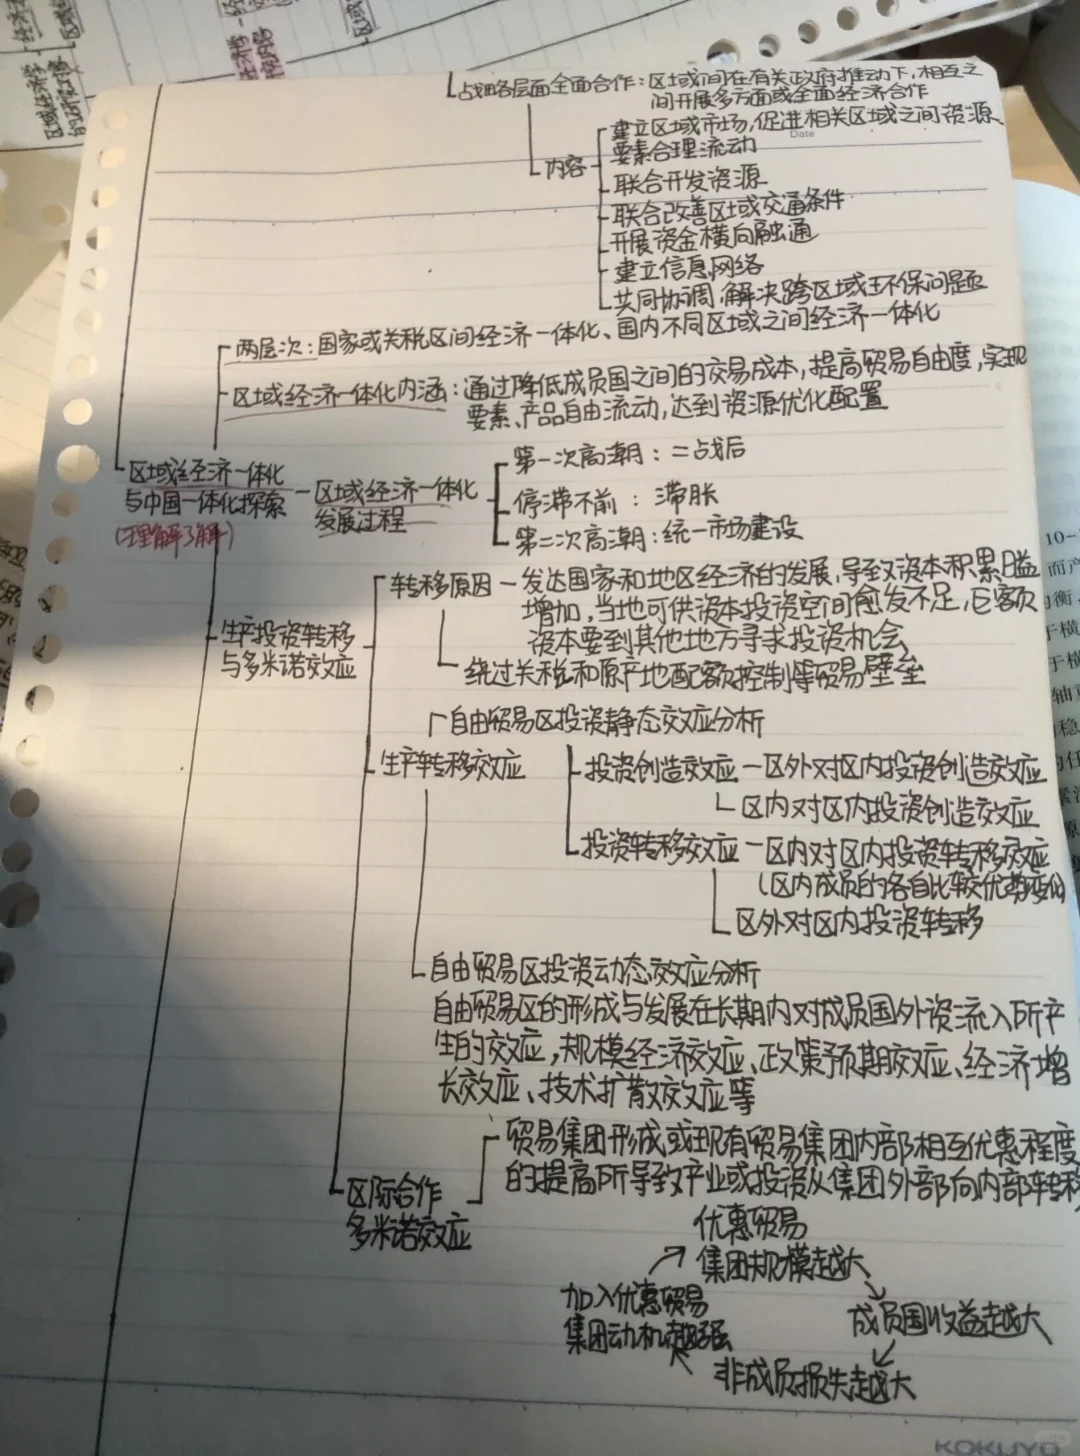 战略层面全面合作：区域间在有关政府推动下，相互之
间开展多方面或全面经济合作
Date
内容
建立区域市场，促进相关区域之间资源、
要素合理流动
联合开发资源
联合改善区域交通条件
开展资金横向融通
建立信息网络
共同协调，解决跨区域环保问题
两层次：国家或关税区间经济一体化、国内不同区域之间经济一体化
区域经济一体化内涵：通过降低成员国之间的交易成本，提高贸易自由度，实现
要素、产品自由流动，达到资源优化配置
区域经济一体化
与中国一体化探索
（理解了解）
区域经济一体化
发展过程
第一次高潮：二战后
停滞不前：滞胀
第二次高潮：统一市场建设
生产投资转移
与多米诺效应
转移原因
发达国家和地区经济的发展，导致资本积累日益
增加，当地可供资本投资空间愈发不足，巨额
资本要到其他地方寻求投资机会
绕过关税和原产地配额控制等贸易壁垒
生产转移效应
自由贸易区投资静态效应分析
投资创造效应－区外对区内投资创造效应
区内对区内投资创造效应
投资转移效应－区内对区内投资转移效应
（区内成员的各自比较优势变化）
区外对区内投资转移
自由贸易区投资动态效应分析
自由贸易区的形成与发展在长期内对成员国外资流入所产
生的效应，规模经济效应、政策预期效应、经济增
长效应、技术扩散效应等
区际合作
多米诺效应
贸易集团形成或现有贸易集团内部相互优惠程度
的提高所导致产业或投资从集团外部向内部转移
优惠贸易
集团规模越大
成员国收益越大
非成员损失越大
加入优惠贸易
集团动机越强
KOKUYO